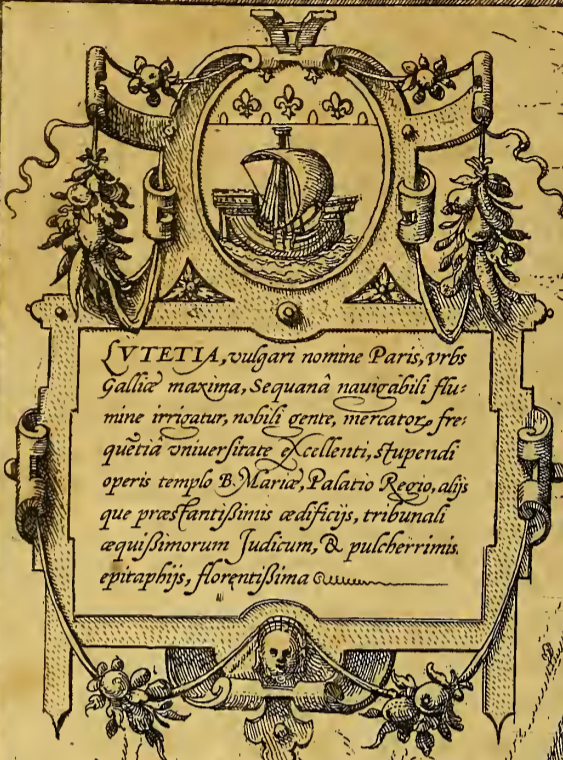 LVTETIA, vulgari nomine Paris, vrbs
Galliæ maxima, Sequanâ nauigabili flu:
mine irrigatur, nobili gente, mercatoꝝ fre:
quētia vniuersitate excellenti, stupendi
operis templo B. Mariæ, Palatio Regio, alijs
que præstantißimis ædificijs, tribunali
æquißimorum Judicum, & pulcherrimis
epitaphijs, florentißima